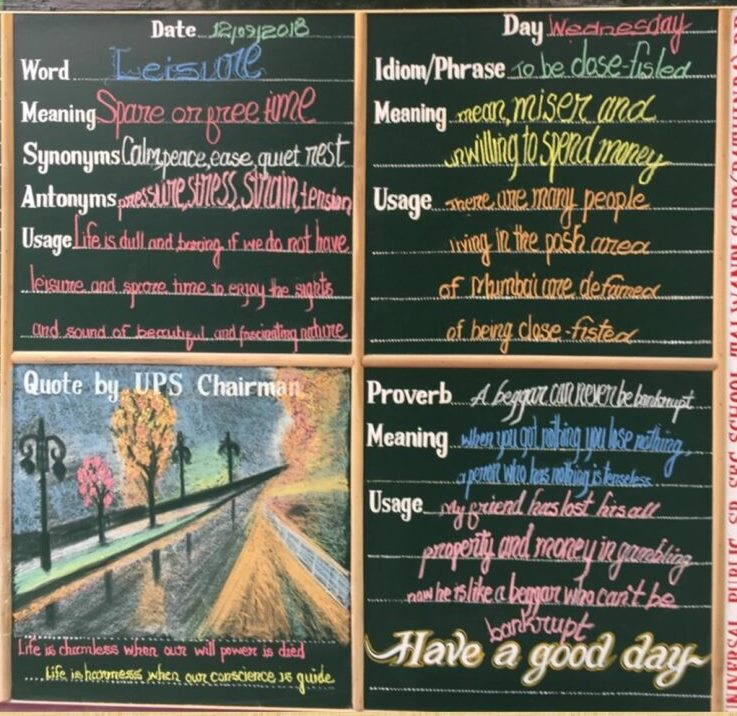 Date 12/09/2018
Word Leisure
Meaning Spare or free time
Synonyms Calm, peace, ease, quiet rest
Antonyms pressure, stress, strain, tension
Usage Life is dull and boring if we do not have
leisure and spare time to enjoy the sights
and sound of beautiful and fascinating nature
Day Wednesday
Idiom/Phrase To be close-fisted
Meaning mean, miser and
unwilling to spend money
Usage There are many people
living in the posh area
of Mumbai are defamed
of being close-fisted
Quote by UPS Chairman
Life is charmless when our will power is died
Life is harmness when our conscience is guide
Proverb A beggar can never be bankrupt
Meaning when you got nothing you lose nothing,
a person who has nothing is
Usage My friend has lost his all
property and money in gambling
now he is like a beggar who can't be
bankrupt
Have a good day
UNIVERSAL PUBLIC SR. SEC. SCHOOL TALWANDI SABO(BATHINDA)